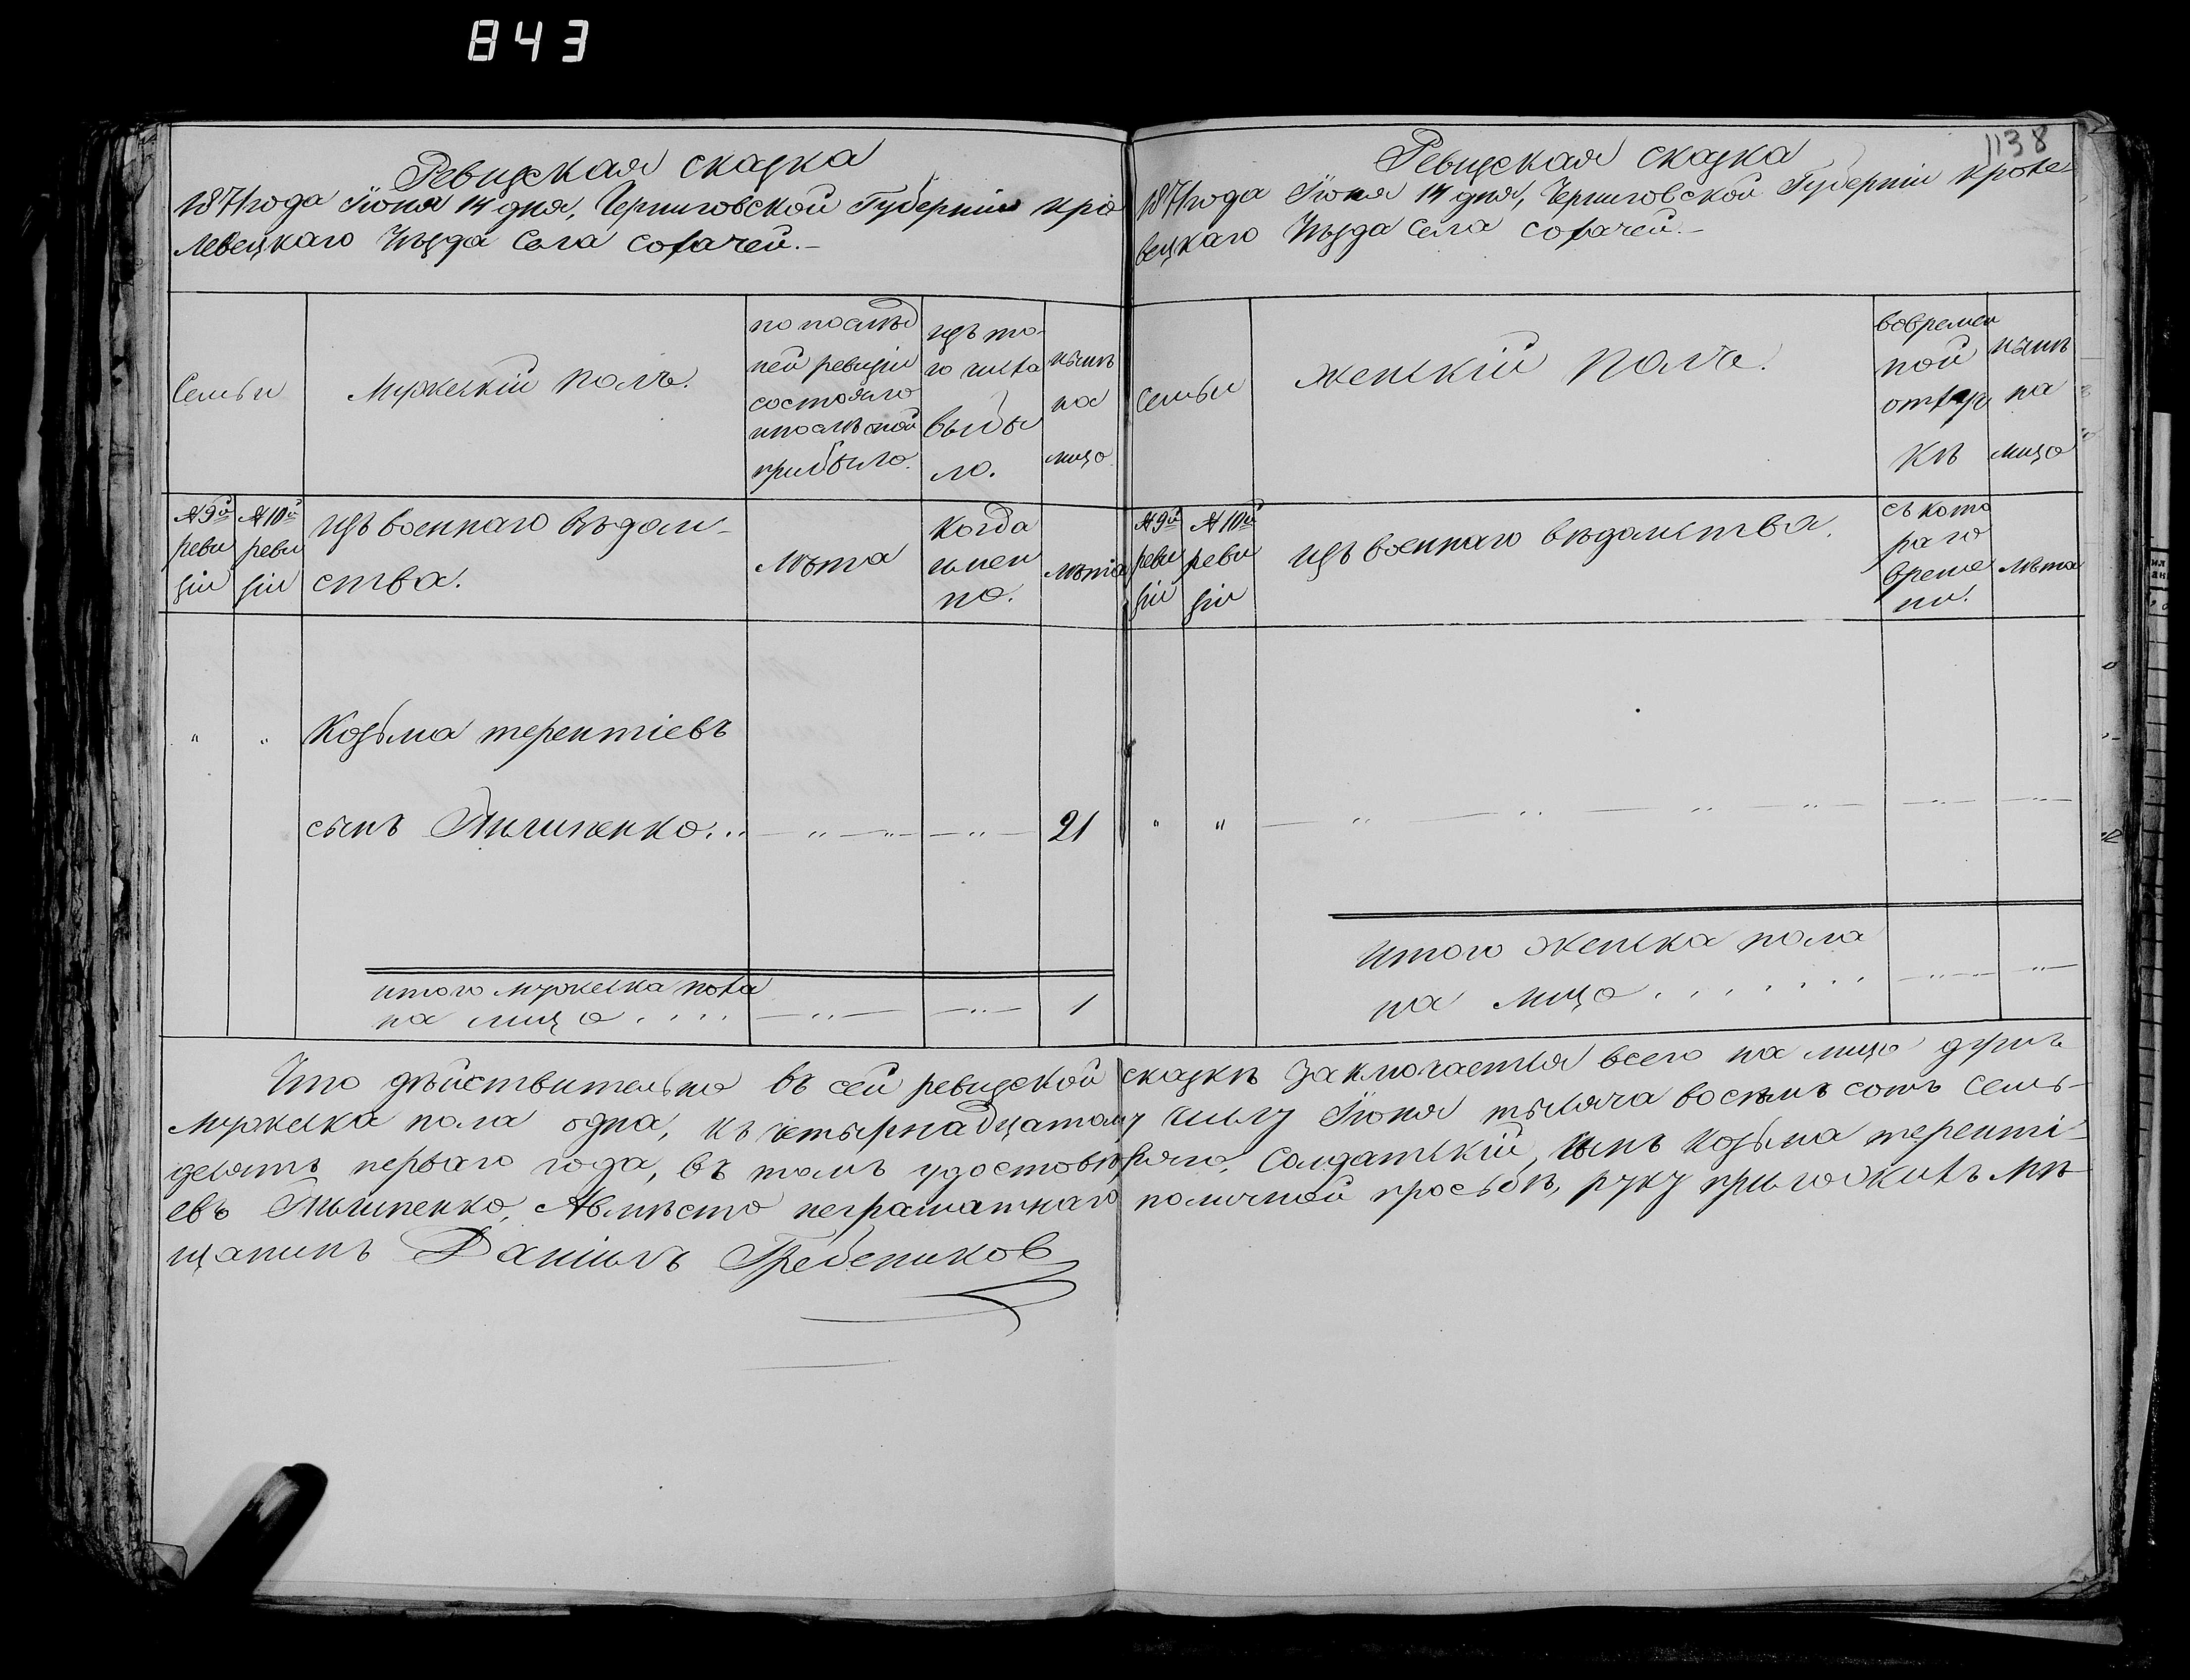 843
1138
Ревизская сказка
1871 года Іюня 14 дня, Черниговской Губерніи кро
левецкаго Уѣзда Села Собачей.–
Семьи
Мужескій полъ.
по послѣд
ней ревизіи
состояло
и послѣ оной
прибыло.
изъ то
го числа
выбы
ло.
нынѣ
на
лицо
№ 9й
реви
зіи
№ 10й
реви
зіи
изъ военнаго вѣдом–
ства.
лѣта
когда
имен
но.
лѣта
" " Козьма терентіевъ
сынъ Пилипенко... — " — " — — " — 21
итого мужеска пола
на лицо . . . . — " — — " — 1
Ревизская сказка
1871 года Іюня 14 дня, Черниговской Губерніи кроле
вецкаго Уѣзда Села Собачей.–
Семьи
женскій полъ.
вовремен
ной
отлуч
кѣ
нынѣ
на
лицо
№ 9й
реви
зіи
№ 10й
реви
зіи
изъ военнаго вѣдомства.
съ кото
раго
време
ни.
лѣта
" " — " — " — " — " — — " — — " —
Итого женска пола
на лицо . . . . . . . — " — — " —
Что дѣйствительно въ сей ревизской сказкѣ заключается всего на лицо душъ
мужеска пола одна, къ четырнадцатому числу Іюня тысяча восемь сотъ семь–
десятъ перваго года, въ томъ удостовѣряю. Солдатскій, сынъ Козьма теренті–
евъ Пилипенко, Авмѣсто неграматнаго по личной просьбѣ, руку приложилъ мѣ–
щанинъ Даніилъ Гребениковъ